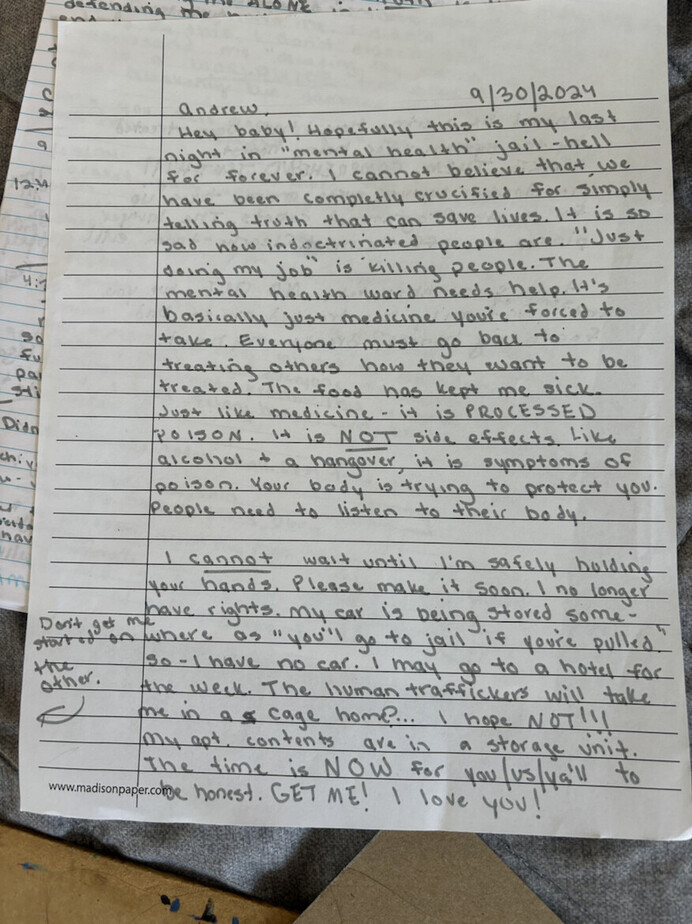 defending the ALONE
9/30/2024
Andrew,
Hey baby! Hopefully this is my last
night in "mental health" jail-hell
for forever. I cannot believe that we
have been completly crucified for simply
telling truth that can save lives. It is so
sad how indoctrinated people are. "Just
doing my job" is killing people. The
mental health ward needs help. It's
basically just medicine you're forced to
take. Everyone must go back to
treating others how they want to be
treated. The food has kept me sick.
Just like medicine - it is PROCESSED
POISON. It is NOT side effects. Like
alcohol + a hangover, it is symptoms of
poison. Your body is trying to protect you.
People need to listen to their body.
I cannot wait until I'm safely holding
your hands. Please make it soon. I no longer
have rights. My car is being stored some-
where as "you'll go to jail if you're pulled."
So - I have no car. I may go to a hotel for
the week. The human traffickers will take
me in a cage home?... I hope NOT!!!
My apt. contents are in a storage unit.
The time is NOW for you/us/ya'll to
be honest. GET ME! I love you!
Don't get me
started on
the
other.
www.madisonpaper.com
Didn